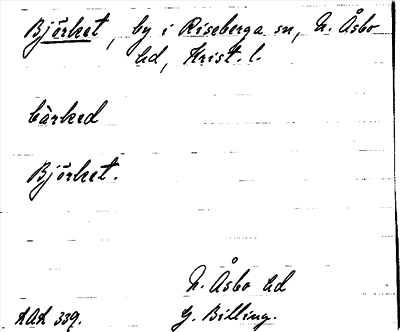 Björket, by i Riseberga sn, N. Åsbo
hd, Krist. l.
bàrked
Björket.
N. Åsbo hd
AOA 339. G. Billing.